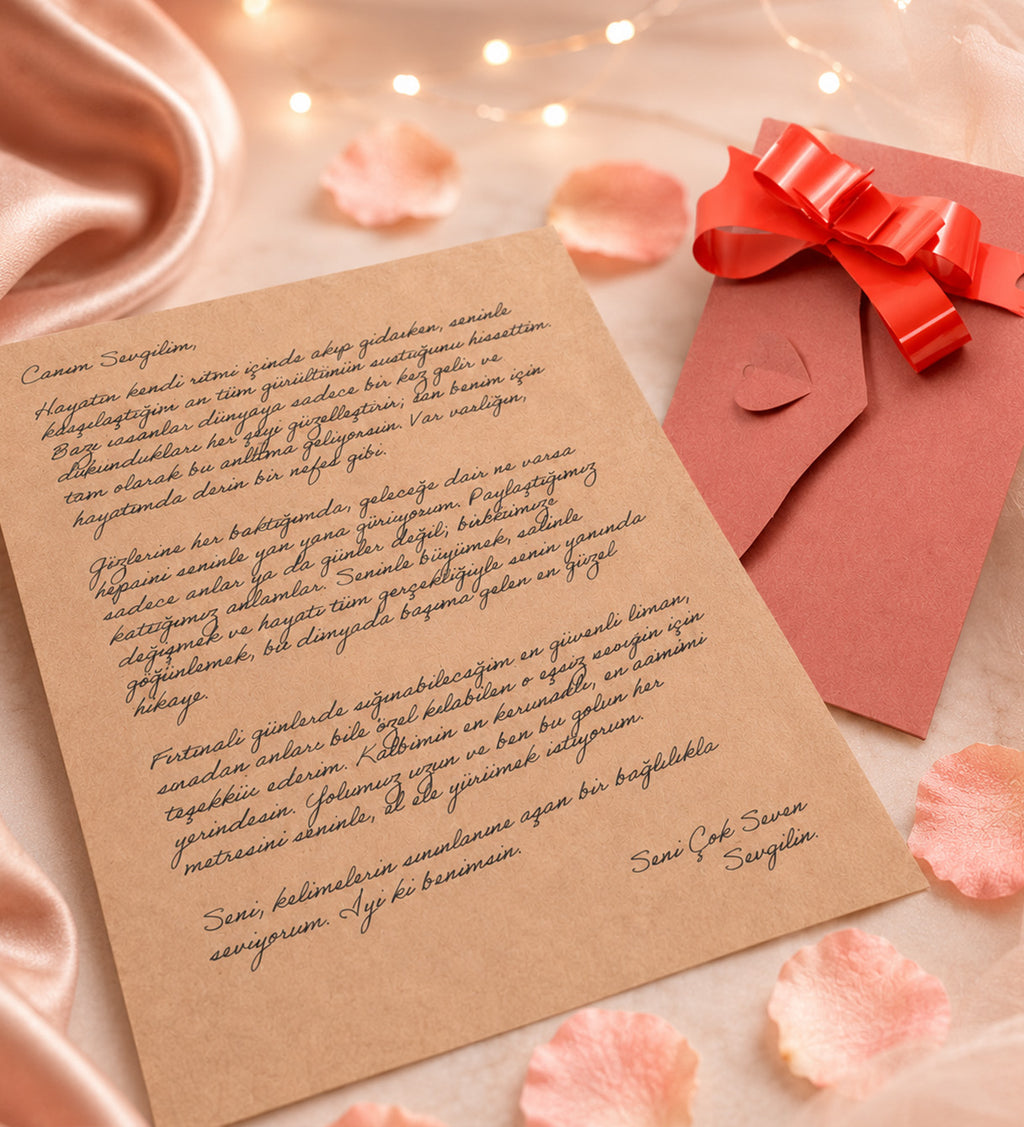 Canım Sevgilim,
Hayatın kendi ritmi içinds akıp gidarken, seninle
kasşılaştığım an tüm gürültünün sustuğunu hissettim.
Bazı insanlar dünyaya sadece bir kez gelir ve
dukundukları her şeyi güzelleştirir; san benim için
tam olarak bu anlama geliyorsun. Var varlığın,
hayatımda derin bir nefes gibi.
Gözlerine her baktığımda, geleceğe dair ne varsa
hepsini seninle yan yana görüyorum. Paylaştığımız
sadece anlar ya da günler değil;
katığımız anlamlar. Seninle büyümek,
değişmek ve hayatı tüm gerçekliğiyle senin yanında
göğünlemek, bu dünyada başıma gelen en güzel
hikaye.
Fırtınali günlerde sığınabilecağim en güvenli liman,
sıradan anları bile özel kılabilen o eşsiz için
teşekkür ederim. Kalbimin en en
yerindesin. Yolumuz uzun ve ben bu golun her
metresini seninle, el ele yürümek istiyorum.
Seni, kelimelerin aşan bir bağlılıkla
seviyorum. İyi ki benimsin.
Seni Çok Seven
Sevgilin.